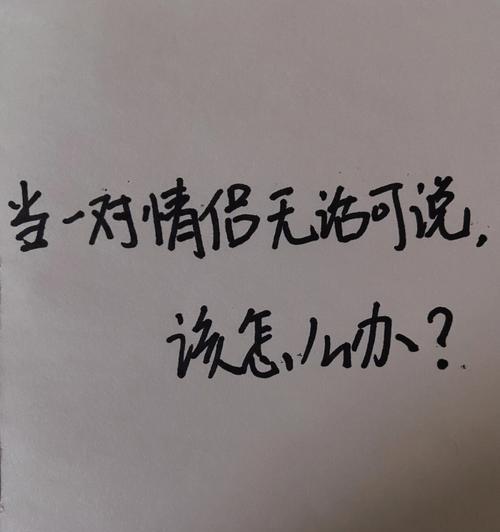 当一对情侣无话可说，
该怎么办？